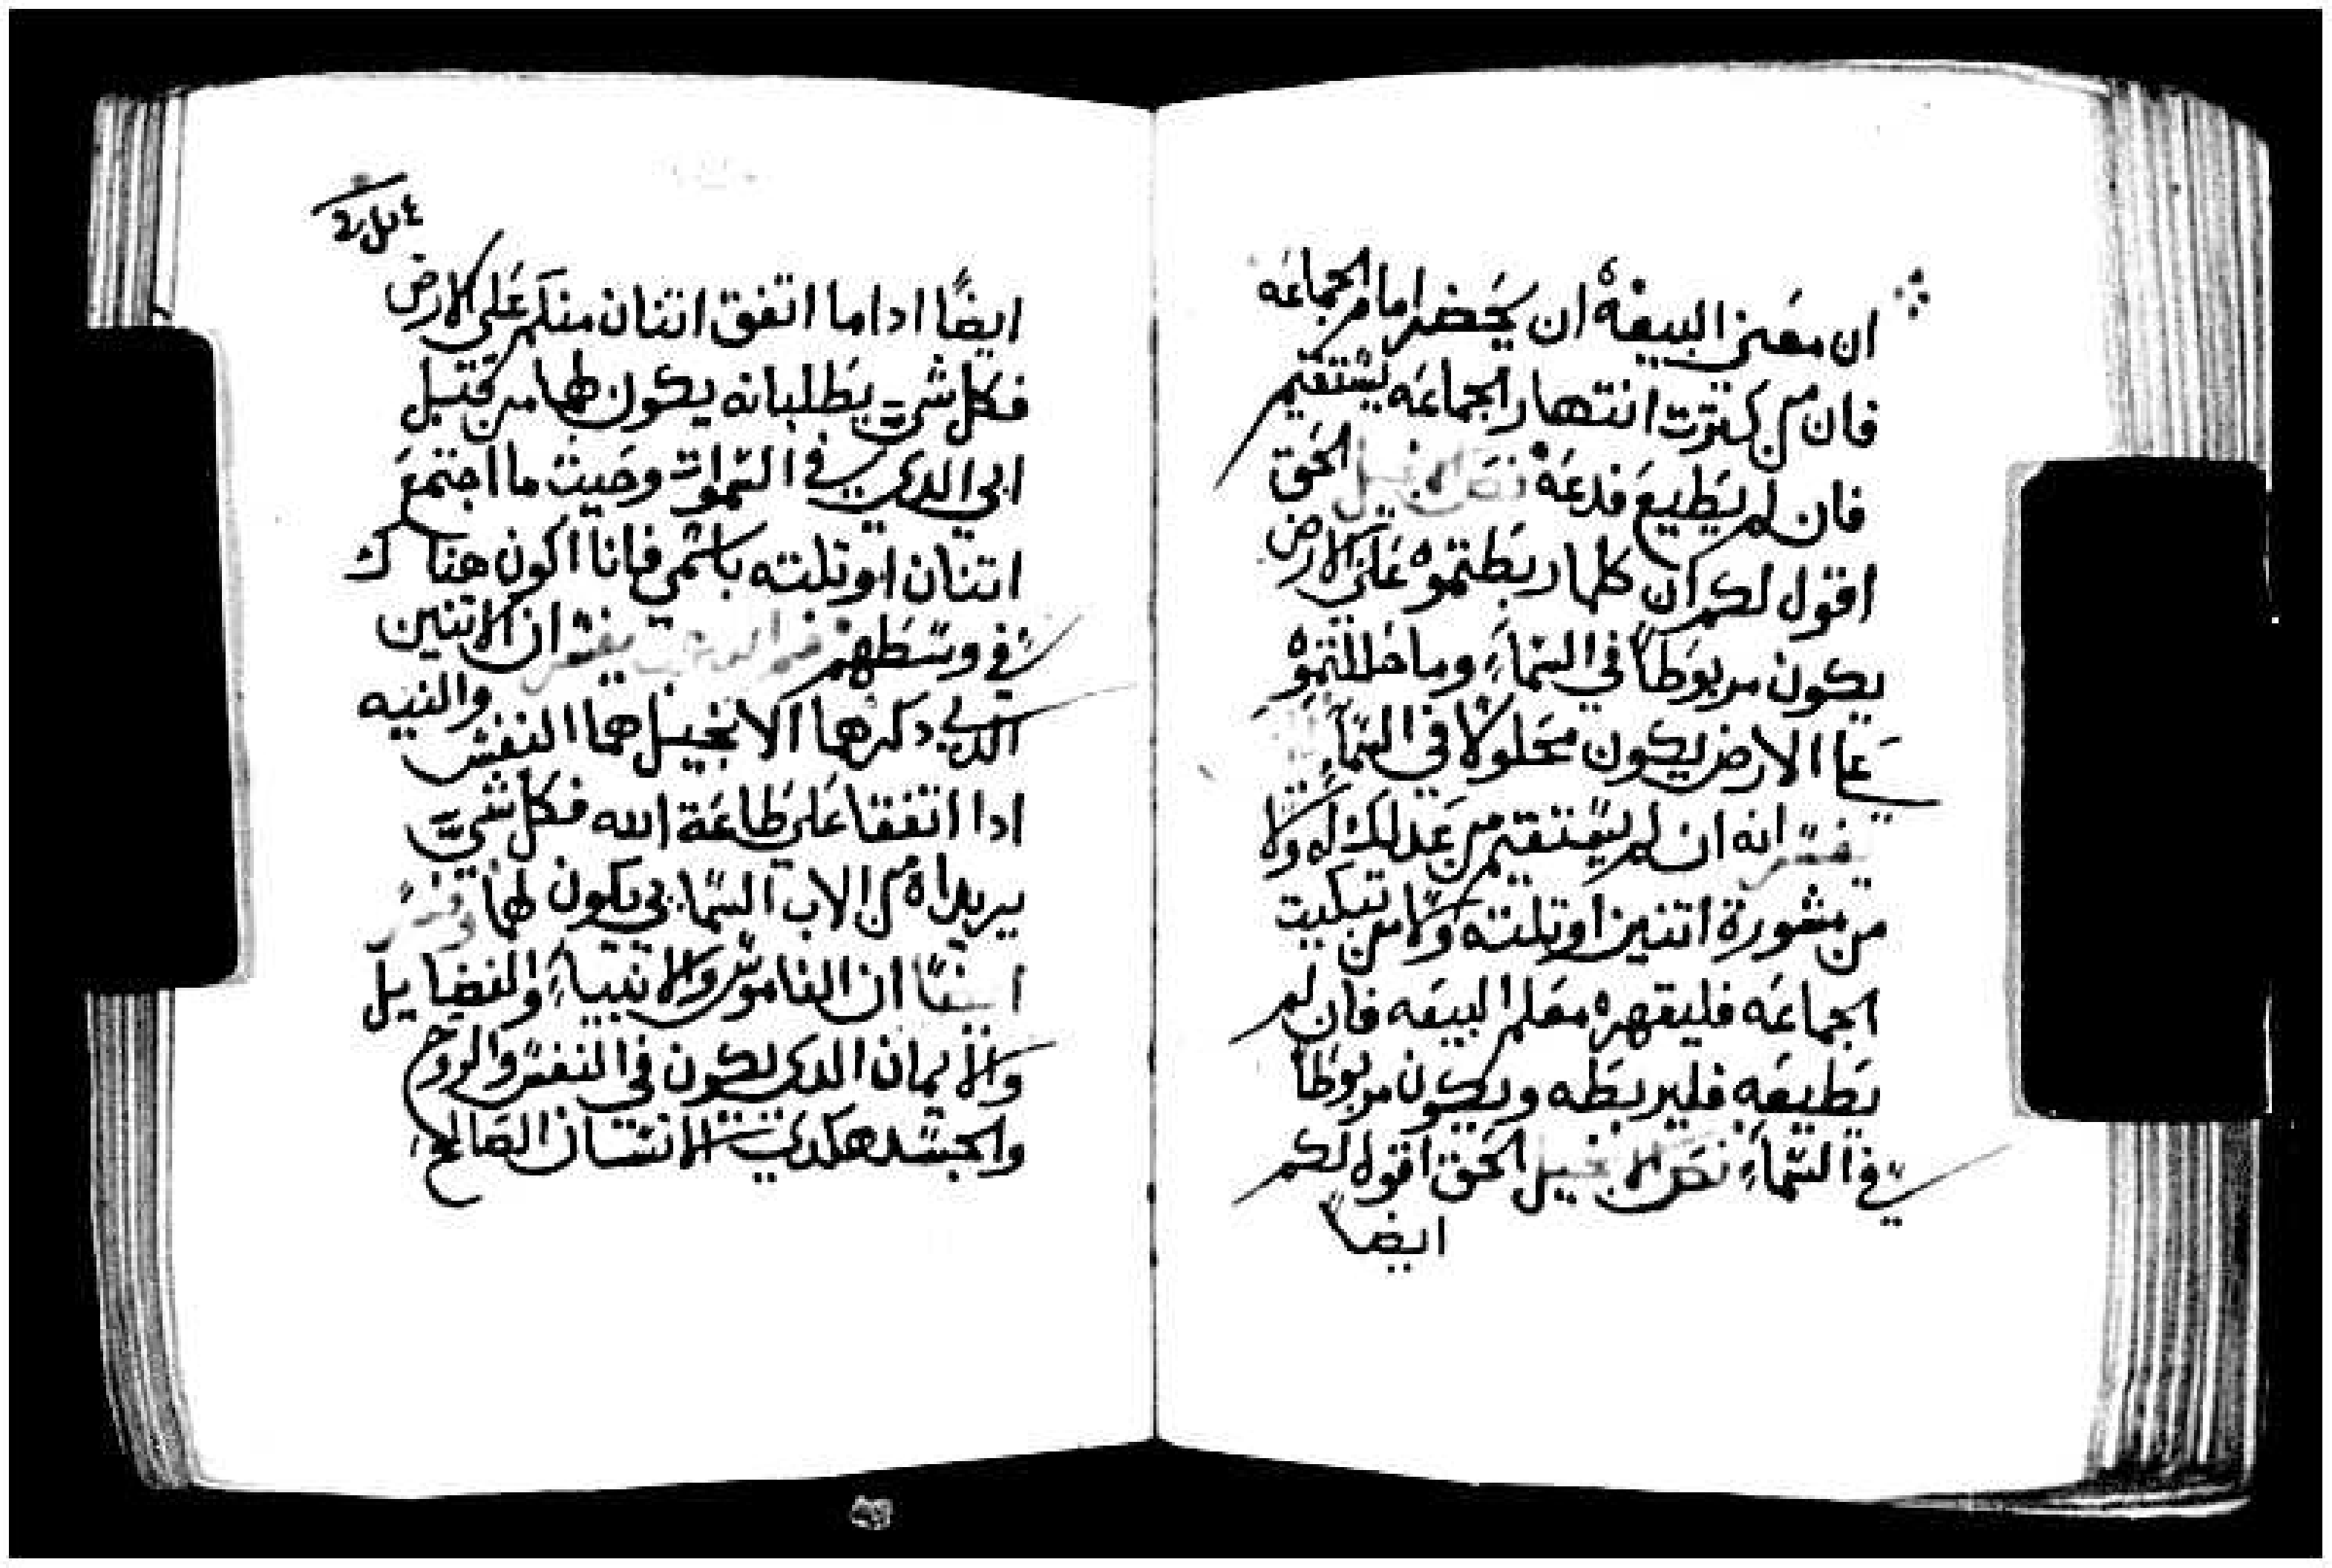 ان معنى البيعة ان يحضر امام الجماعه
فان من كترت انتهار الجماعه يستقيم
فان لم يطيع فدعة نص الانجيل الحق
اقول لكم ان كلما ربطتموه على الارض
يكون مربوطاً في السماء وما حللتموه
على الارض يكون محلولاً في السماء
تفسير انه ان لم يستقيم من عدلك له ولا
من مشورة اتنين او تلته ولا من تبكيت
الجماعه فليقهره معلم البيعه فان لم
يطيعه فليربطه ويكون مربوطاً
في السماء نص الانجيل الحق اقول لكم
ايضاً
ايضاً ادا ما اتفق اتنان منكم على الارض
فكل شي يطلبانه يكون لهما من قبل
ابي الدي في السموات وحيت ما اجتمع
اتنان او تلته باسمي فانا اكون هناك
في وسطهم تفسير ان الاتنين
الدي دكرهما الانجيل هما النفس والنيه
ادا اتفقا على طاعة الله فكل شي
يريداه من الاب السمايي يكون لهما وفسر
ايضاً ان الناموس والانبياء والفضايل
والايمان الدي يكون في النفس والروح
والجسد هكدي الانسان الصالح